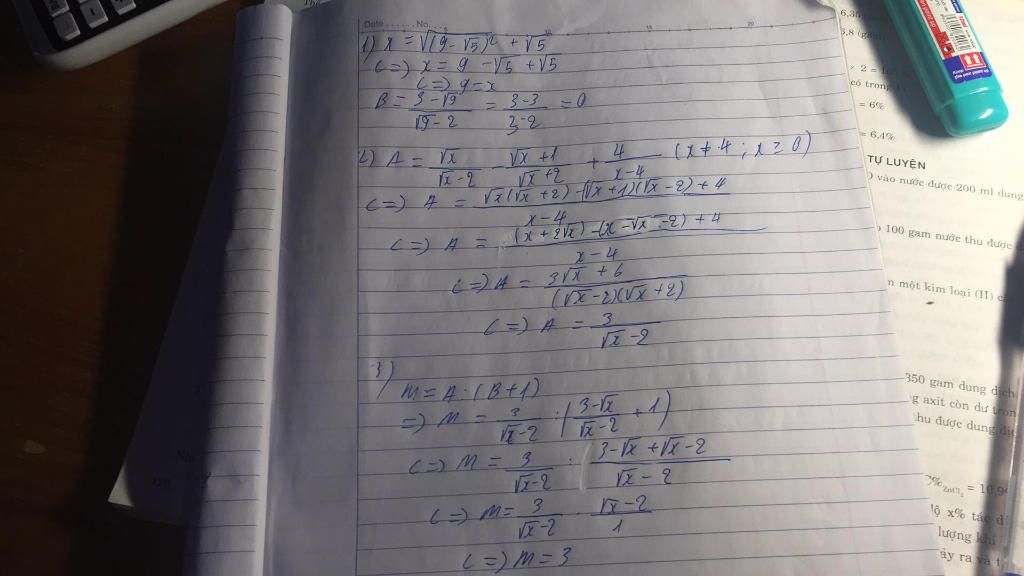 Date ...... No. ...
10
15
20
1) x = √(9 - √5)² + √5
<=> x = 9 - √5 + √5
<=> 9 = x
B = (3 - √9)/(√9 - 2) = (3 - 3)/(3 - 2) = 0
2) A = √x/(√x - 2) - (√x + 1)/(√x + 2) + 4/(x - 4) (x ≠ 4 ; x ≥ 0)
<=> A = (√x(√x + 2) - (√x + 1)(√x - 2) + 4)/(x - 4)
<=> A = ((x + 2√x) - (x - √x - 2) + 4)/(x - 4)
<=> A = (3√x + 6)/((√x - 2)(√x + 2))
<=> A = 3/(√x - 2)
3)
M = A · (B + 1)
=> M = 3/(√x - 2) · ((3 - √x)/(√x - 2) + 1)
<=> M = 3/(√x - 2) · (3 - √x + √x - 2)/(√x - 2)
<=> M = 3/(√x - 2) · (√x - 2)/1
<=> M = 3
6,35
3,8 (gam)
× 2 =
có trong
= 6%
= 6,4%
TỰ LUYỆN
vào nước được 200 ml dung
100 gam nước thu được
một kim loại (II)
350 gam dung dịch
axit còn dư
thu được dung
C%ZnCl₂ = 10,
x% tác
lượng khí
ra và